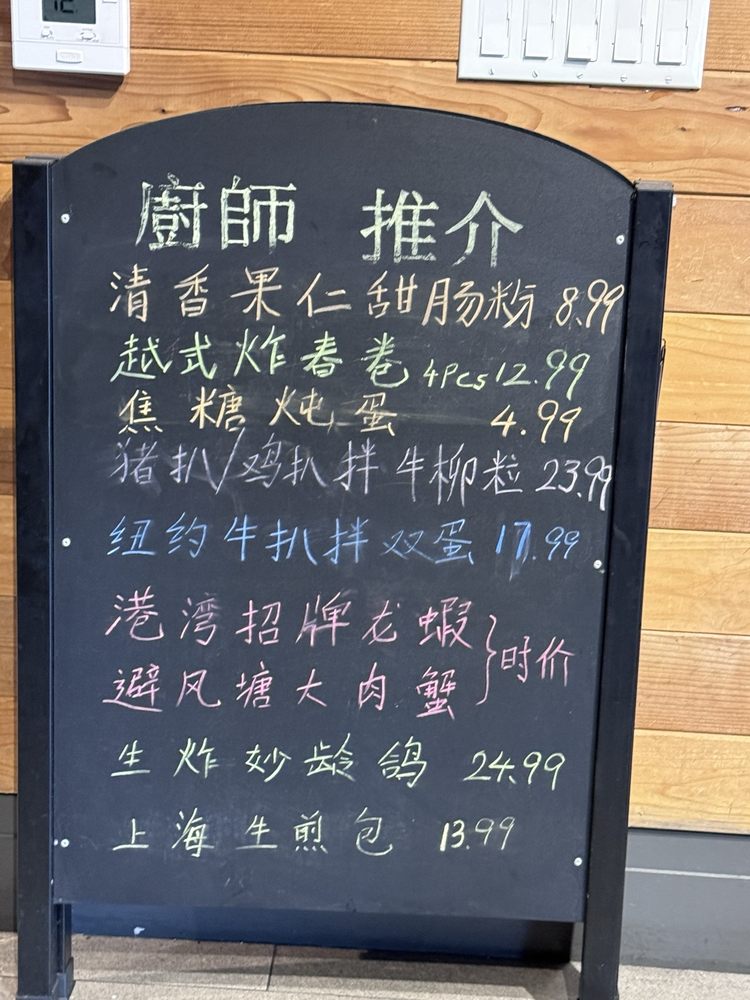 廚師 推介
清香果仁甜肠粉 8.99
越式炸春卷 4Pcs 12.99
焦糖炖蛋 4.99
猪扒/鸡扒拌牛柳粒 23.99
纽约牛扒拌双蛋 17.99
港湾招牌龙蝦
避风塘大肉蟹 } 时价
生炸妙龄鸽 24.99
上海生煎包 13.99